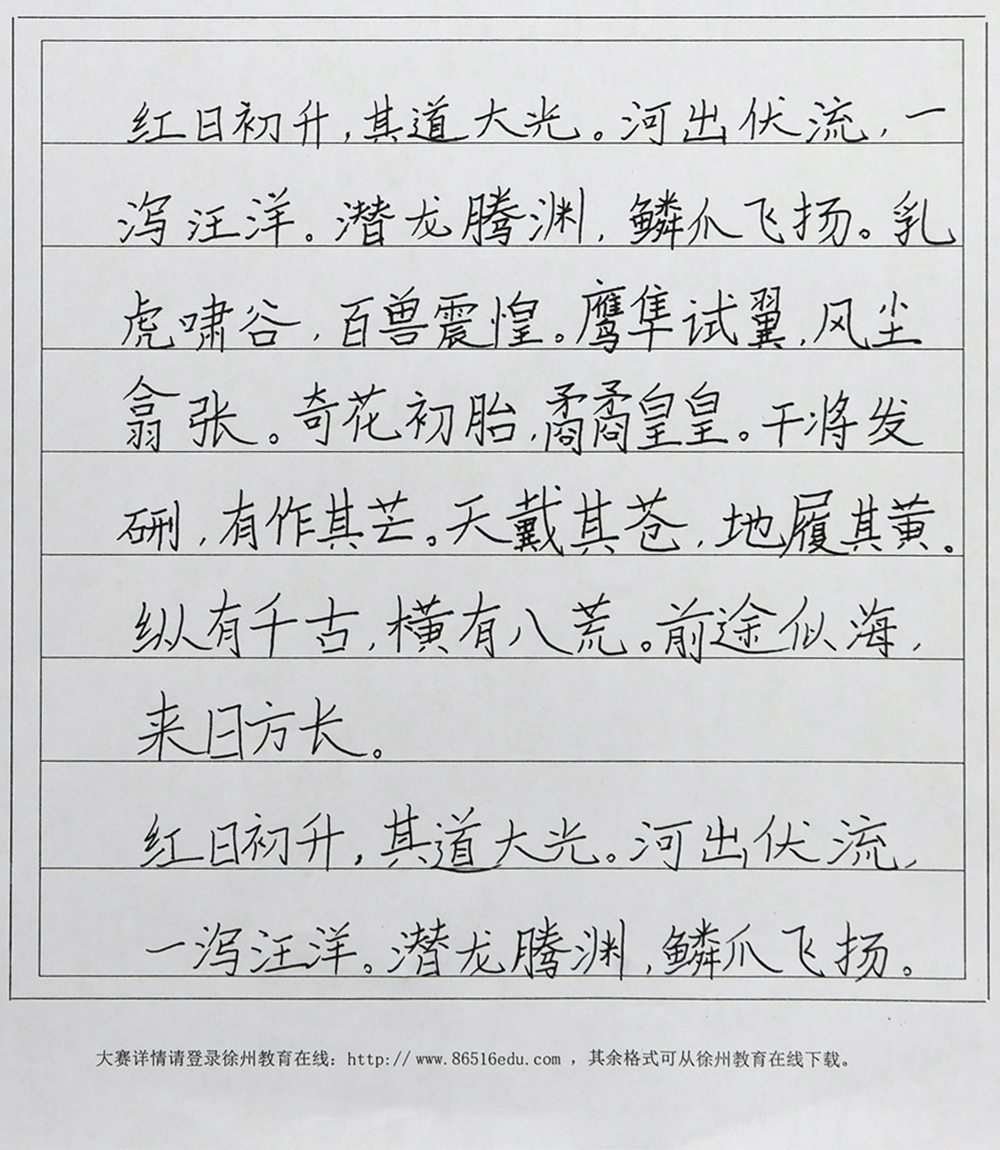 红日初升,其道大光。河出伏流,一
泻汪洋。潜龙腾渊,鳞爪飞扬。乳
虎啸谷,百兽震惶。鹰隼试翼,风尘
翕张。奇花初胎,矞矞皇皇。干将发
硎,有作其芒。天戴其苍,地履其黄。
纵有千古,横有八荒。前途似海,
来日方长。
红日初升,其道大光。河出伏流,
一泻汪洋。潜龙腾渊,鳞爪飞扬。
大赛详情请登录徐州教育在线:http://www.86516edu.com ,其余格式可从徐州教育在线下载。